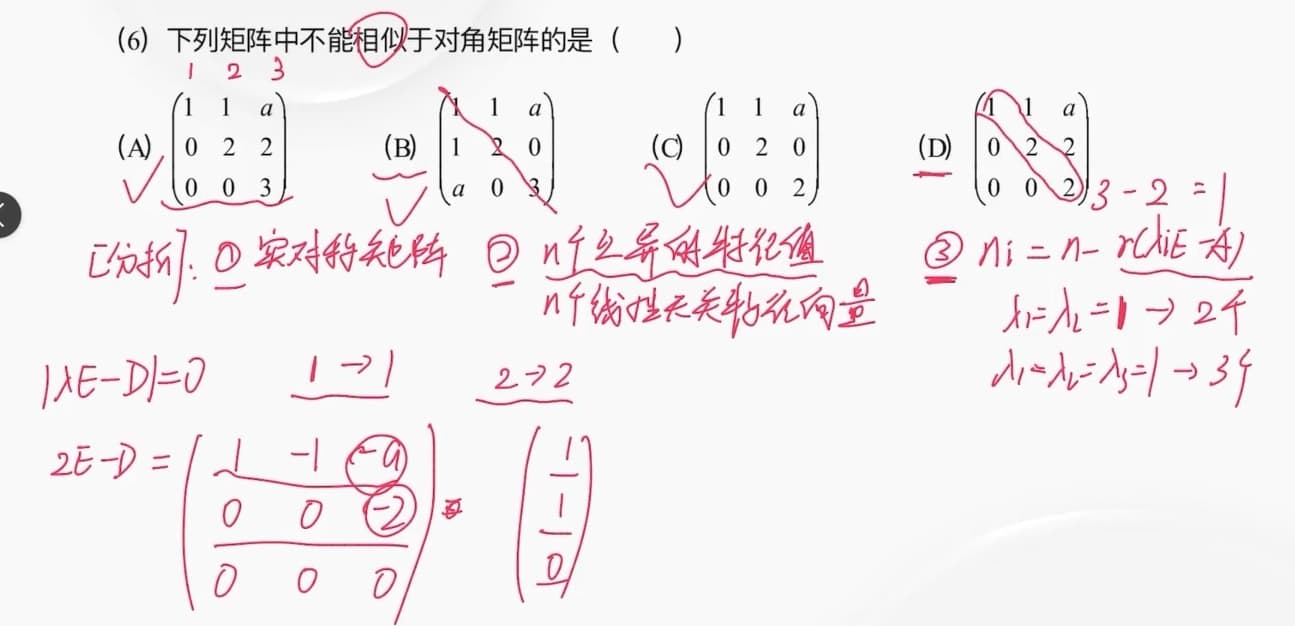 (6) 下列矩阵中不能相似于对角矩阵的是（ ）
1 2 3
(A) (1 1 a
0 2 2
0 0 3)
(B) (1 1 a
1 2 0
a 0 3)
(C) (1 1 a
0 2 0
0 0 2)
(D) (1 1 a
0 2 2
0 0 2)
3-2=1
[分析]: ① 实对称矩阵 ② n个互异的特征值 ③ ni = n- r(λiE-A)
n个线性无关特征向量
λ1=λ2=1→2个
λ1=λ2=λ3=1→3个
|λE-D|=0 1→1 2→2
2E-D = (1 -1 -a
0 0 -2
0 0 0)
(1
1
0)